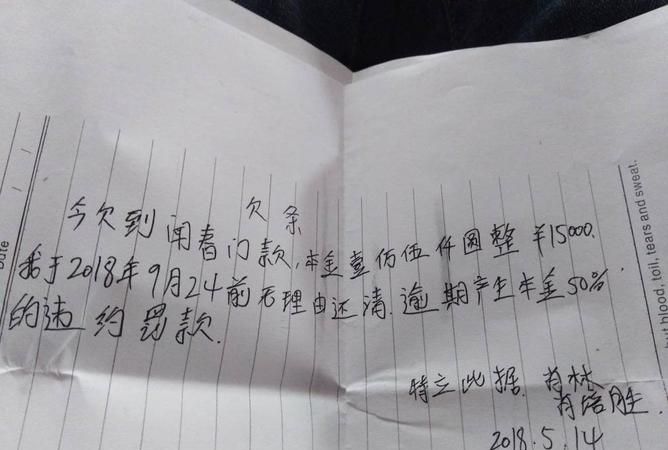 欠条
今欠到闻春门款,本金壹佰伍仟圆整 ¥15000.
我于2018年9月24前无理由还清.逾期产生本金50%
的违约罚款.
特立此据. 肖林
肖培胜.
2018.5.14
but blood, toil, tears and sweat.
Date